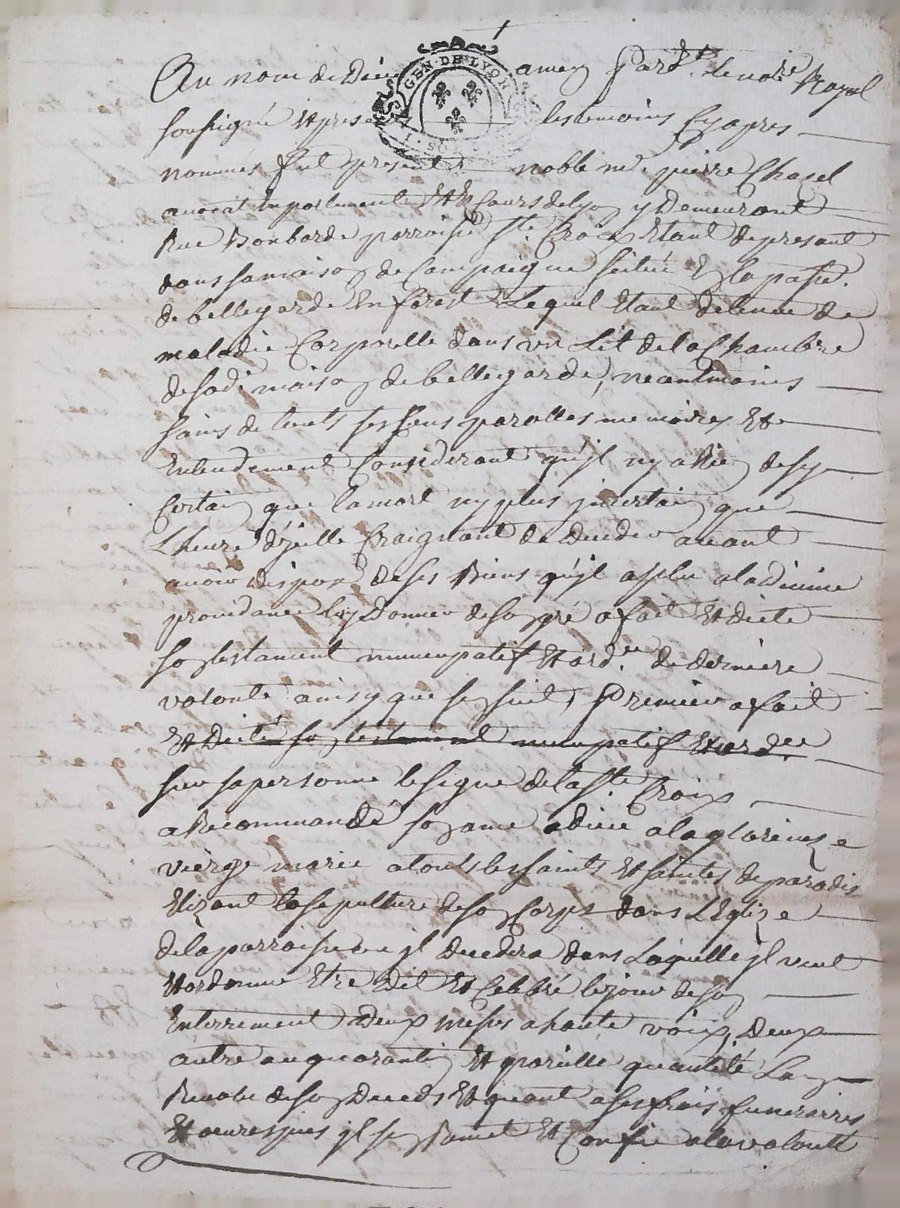 Au nom de Dieu amen Pard.t le no.re Royal
GEN·DE·LYON
soussigné et presents les temoins cy apres
nommes fut present noble m.e pierre Chazel
avocat en parlement et es Cours de lyon y Demeurant
Rue Bombarde parroisse S.te Croix etant de present
dans sa maison de Campaigne scituée en la par.sse
de bellegarde en forest Lequel etant detenu de
maladie Corporelle dans un Lit de la Chambre
de sad.e maison de bellegarde, neantmoins
sains de touts ses sens parolles memoires et
entendement Considerant qu'jl ny a Rien de sy
Certain que la mort ny plus jncertain que
L'heure d'jcelle Craignant de deceder avant
avoir disposé de ses Biens qu'jl a plu a la divine
providance luy Donner de son gré a fait et dicté
son testament nuncupatif et ord.ce de derniere
volonté ainsy que sensuit Premier a fait
et dicté son testament nuncupatif et ord.ce
sur sa personne le signe de la S.te Croix
a Recommandé son ame a dieu a la glorieuse
vierge marie a touts les saints et saintes de paradis
Elizant la sepulture de son Corps dans L'Eglize
de la parroisse ou jl decedera dans Laquelle jl veut
et ordonne etre dit et Celebré le jour de son
enterrement deux messes a haute voix, deux
autre au quarantin et pareille quantité
Revolu de son deceds et quant a ses frais funeraires
et oeuvres pies jl sen Remet et Confie a la volonté